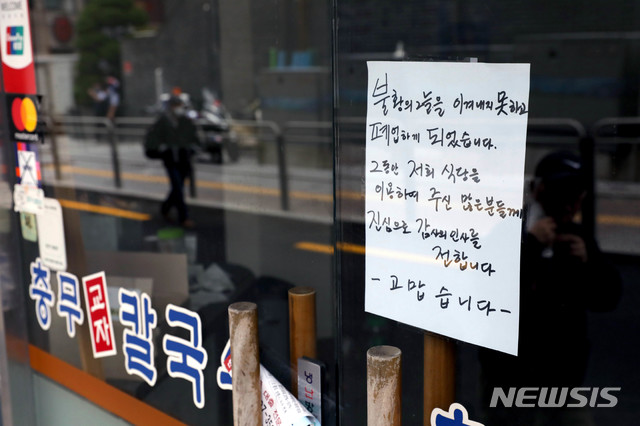 WELCOME
MasterCard
불황의 그늘을 이겨내지 못하고
폐업하게 되었습니다.
그동안 저희 식당을
이용하여 주신 많은 분들께
진심으로 감사의 인사를
전합니다
- 고맙습니다 -
충무 교자 칼국
NEWSIS